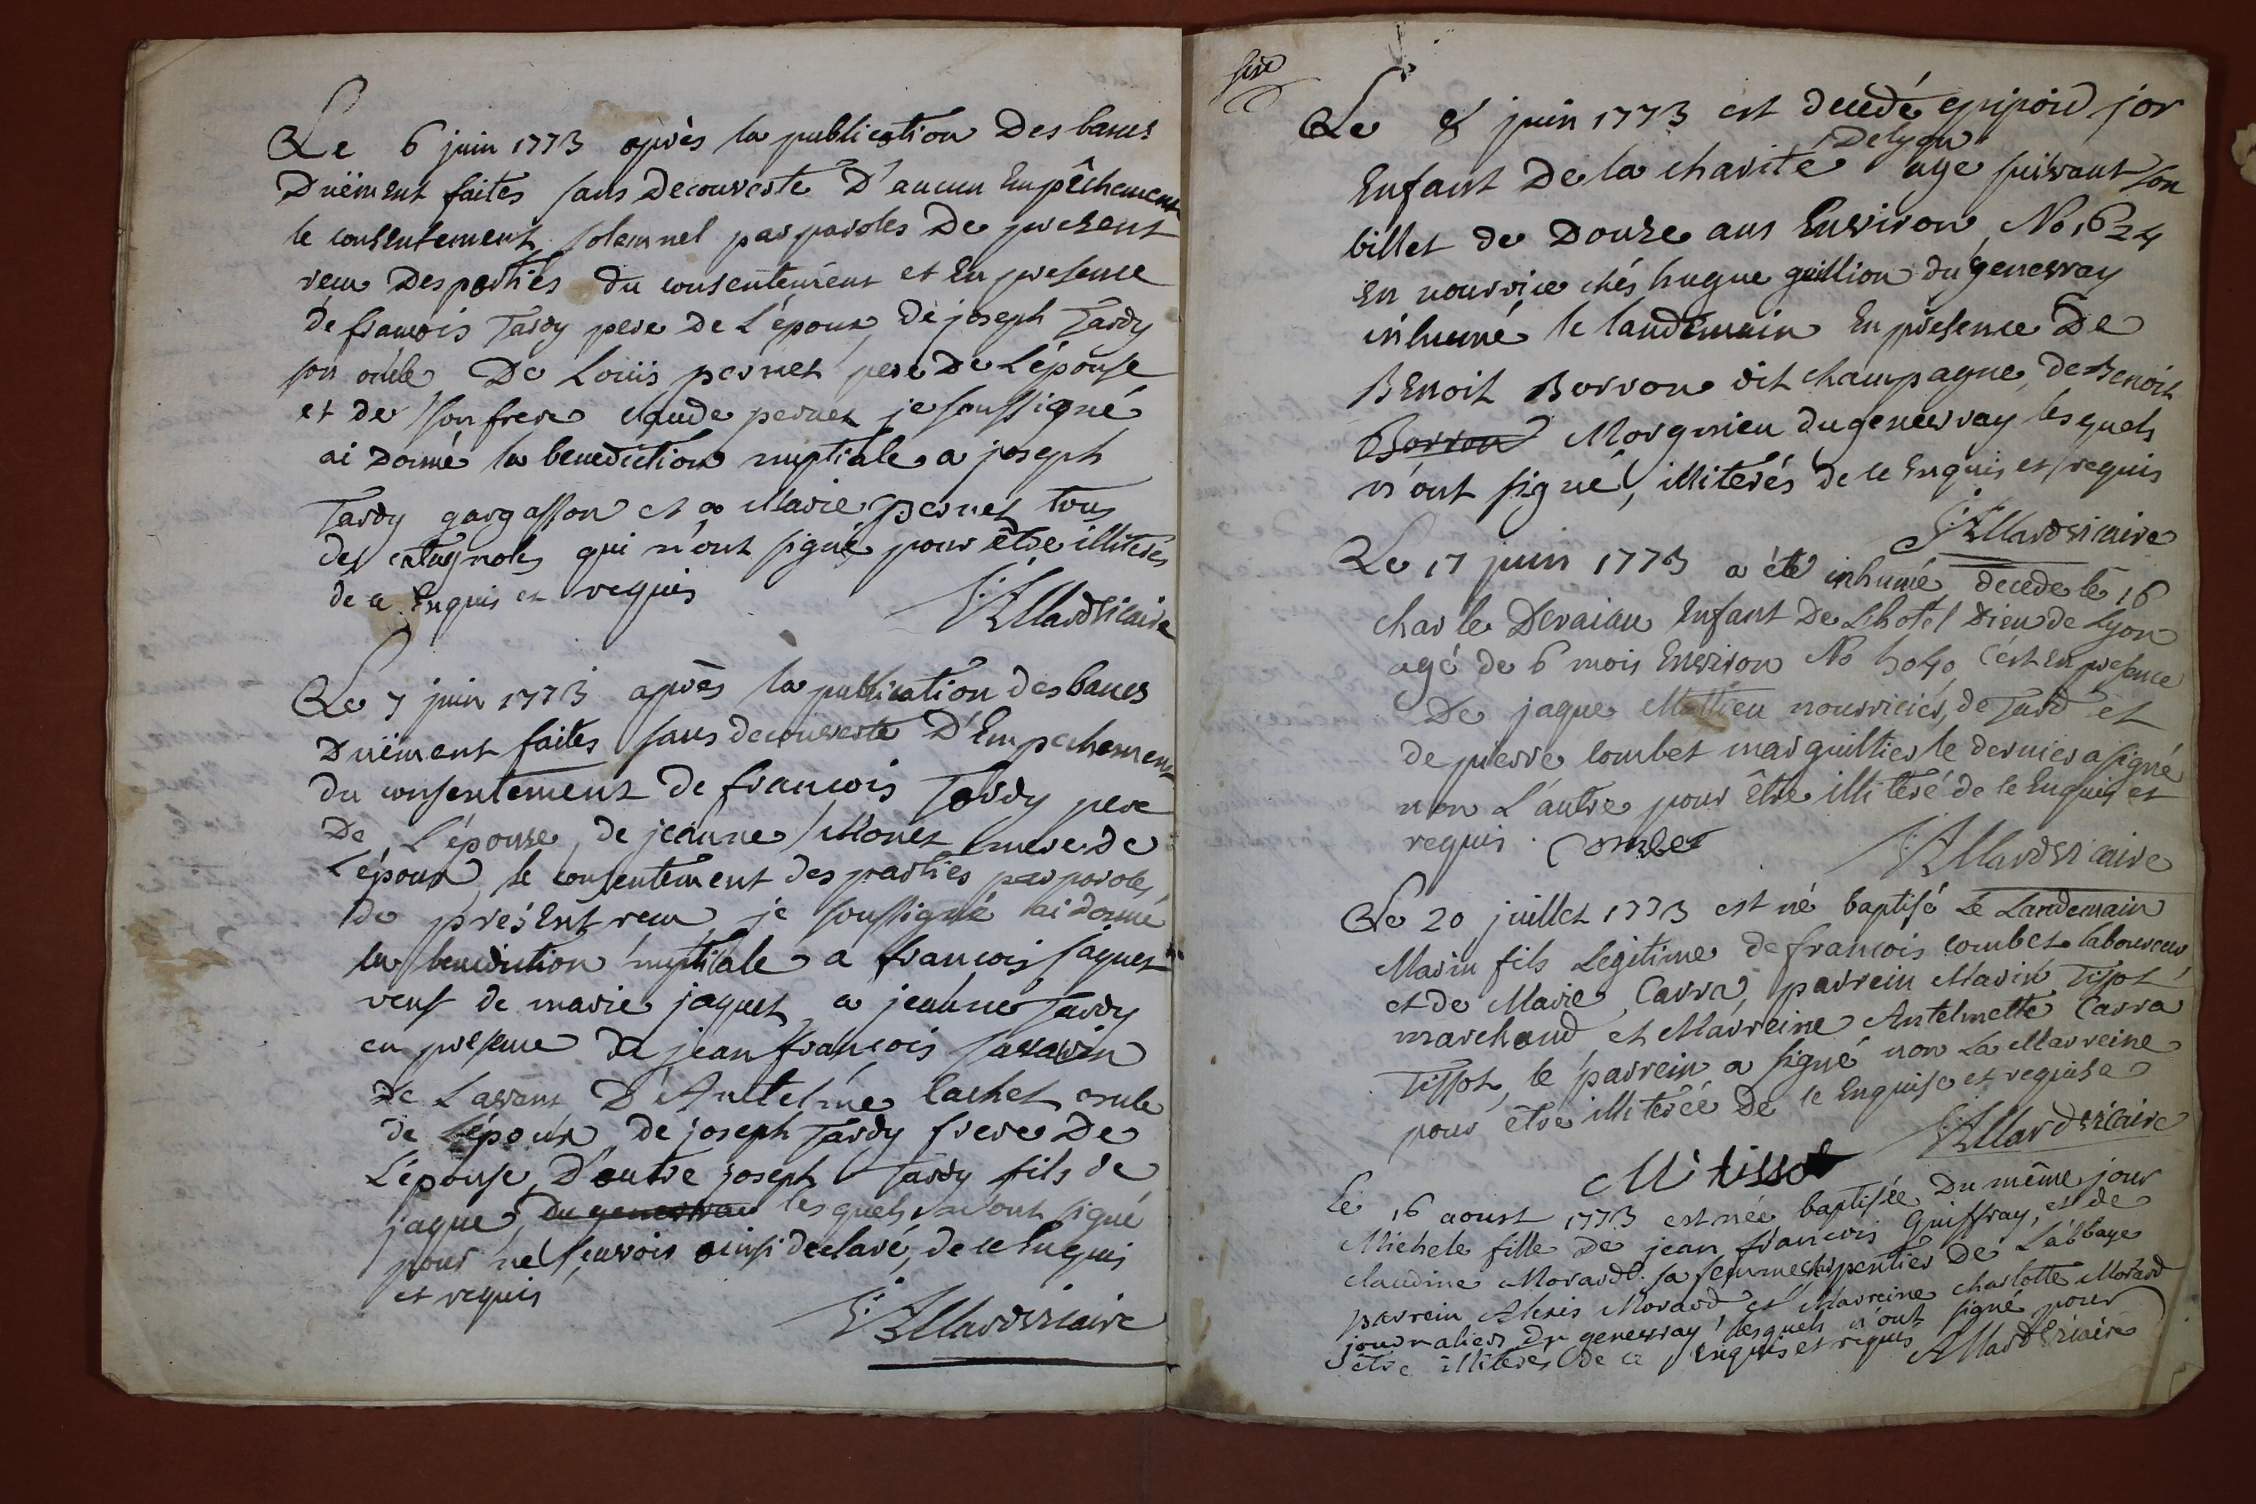 Le 6 juin 1773 après la publication Des bancs
Duëment faites sans Decouverte D'aucun Empêchement
le consentement solemnel par paroles De present
recu Des parties du consentement et En presence
de francois Tardy pere De L'époux, de joseph Tardy
son oncle De Loüis pernet pere De L'épouse
et de son frere claude pernet je soussigné
ai Donné la benediction nuptiale a joseph
Tardy gargasson et a Marie pernet tous
des catagnoles qui n'ont signé pour être illiterés
de ce Enquis et requis
Allard Vicaire
Le 7 juin 1773 après la publication des bancs
Duëment faites sans decouverte D'Empechement
du consentement de francois Tardy pere
De L'épouse, de jeanne Monet mere de
L'époux, le consentement des parties par paroles
de présent recu je soussigné ai donné
la benediction nuptiale a francois jaquet
veuf de marie jaquet a jeanne Tardy
en presence de jean francois savarin
de Lavant D'Antelme lachet oncle
de L'époux, de joseph Tardy frere De
L'épouse, D'autre joseph Tardy fils de
jaque, du genevray les quels n'ont signé
pour ne scavoir ainsi declaré, de ce Enquis
et requis
Allard Vicaire
Le 8 juin 1773 est decedé jor
Delyon
Enfant De la charité age suivant son
billet de Douze ans Environ, No 1624
En nourrice chés hugue guillion du genevray
inhumé le landemain En présence De
Benoit Borron dit champagne, de Benoit
Borron Morgnieu du genevray les quels
n'ont signé, illiterés de ce Enquis et requis
Allard Vicaire
Le 17 juin 1773 a été inhumé decede le 16
charle Devaiau Enfant De Lhotel Dieu de Lyon
agé de 6 mois Environ No c'est En presence
De jaque Mattieu nourricier, de Tard et
de pierre combet marguillier le dernier a signé
non L'autre pour être illiteré de ce Enquis et
requis. Combet
Allard Vicaire
Le 20 juillet 1773 est né baptisé Le Landemain
Marin fils Légitime de francois combet laboureur
et de Marie Carra, parrein Marin Tissot
marchand et Marreine Antelmette Carra
Tissot, le parrein a signé non La Marreine
pour être illiterée De ce Enquise et requise
Allard Vicaire
M tissot
Le 16 aoust 1773 est née baptisée Du même jour
Michele fille De jean francois Guiffray, et de
claudine Morard sa femme charpentier De L'abbaye
parrein Alexis Morard et Marreine charlotte Morard
journalier Du genevray, lesquels n'ont signé pour
être illiteres de ce Enquis et requis Allard Vicaire